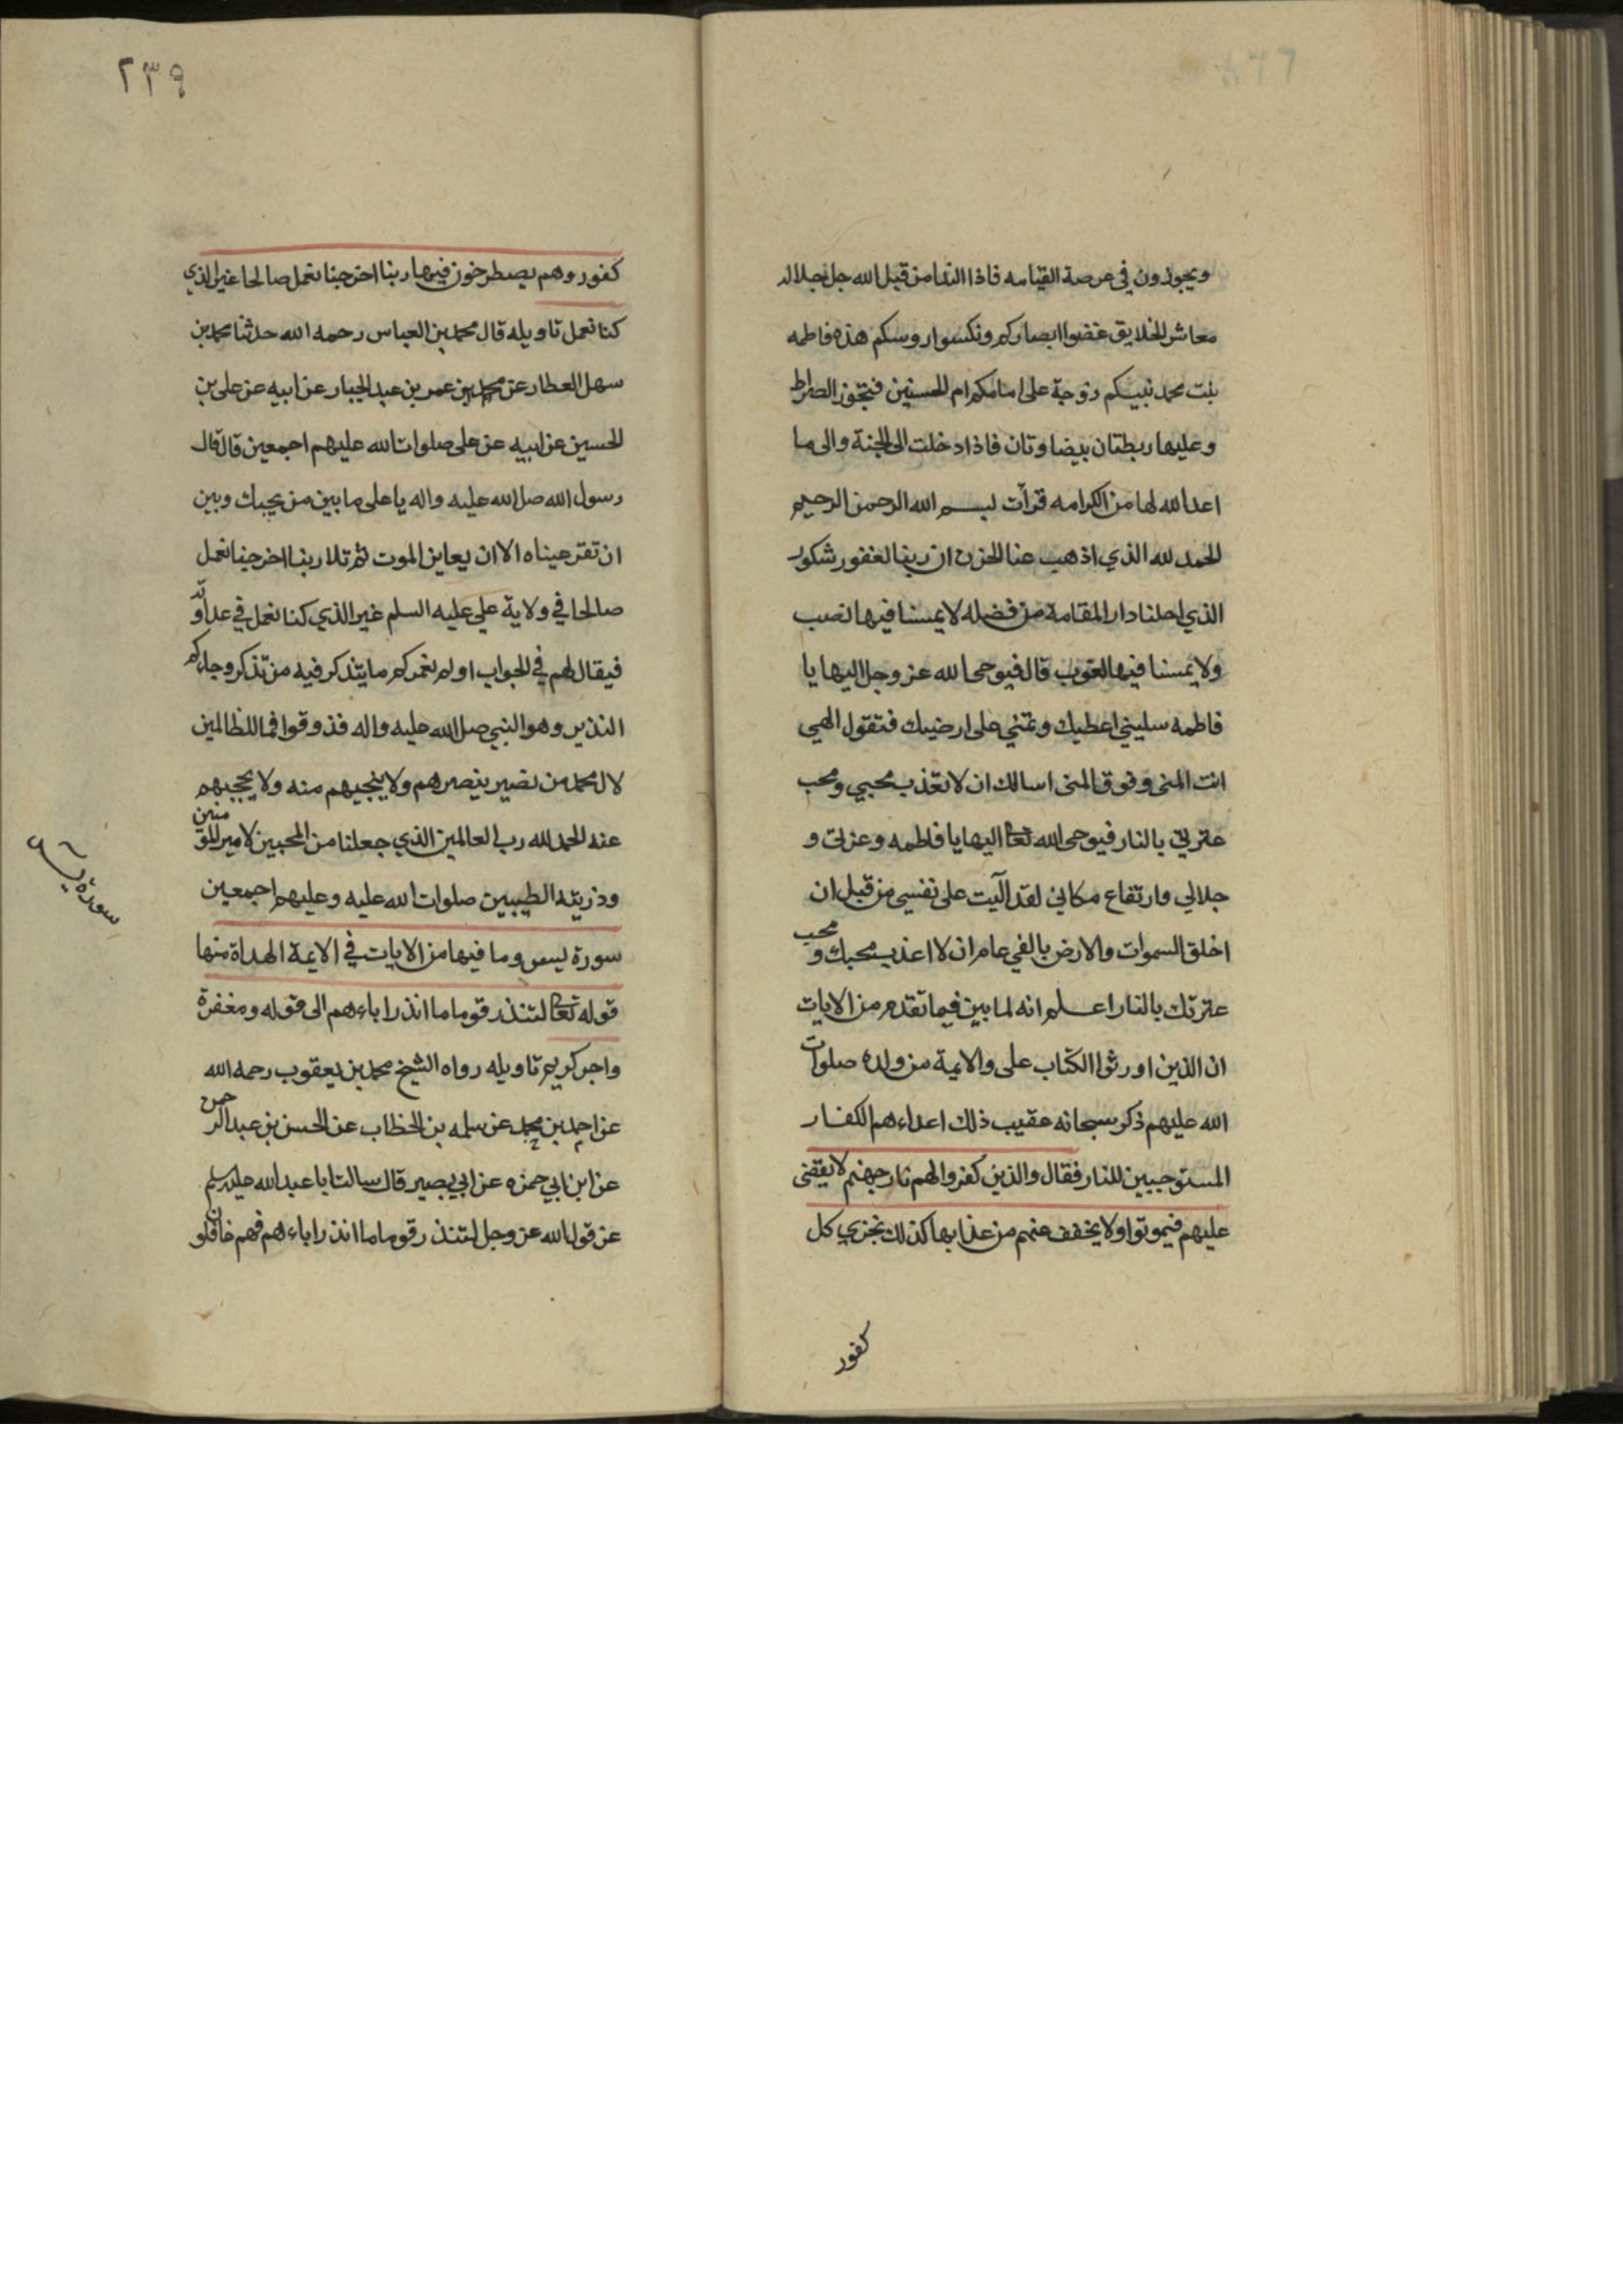 ويجوزون في عرصة القيامه فاذا الندا من قبل الله جل جلاله
معاشر الخلايق غضوا ابصاركم ونكسوا روسكم هذه فاطمه
بنت محمد نبيكم زوجة على امامكم ام الحسنين فتجوز الصراط
وعليها ريطتان بيضاوتان فاذا دخلت الى الجنة والى ما
اعد الله لها من الكرامه قرأت بسم الله الرحمن الرحيم
الحمد لله الذي اذهب عنا الحزن ان ربنا لغفور شكور
الذي احلنا دار المقامة من فضله لا يمسنا فيها نصب
ولا يمسنا فيها لغوب قال فيوحى الله عز وجل اليها يا
فاطمه سليني اعطيك وتمني على ارضيك فتقول الهي
انت المنى وفوق المنى اسالك ان لا تعذب محبي ومحب
عترتي بالنار فيوحى الله تعا اليها يا فاطمه وعزتي و
جلالي وارتفاع مكاني لقد آليت على نفسي من قبل ان
اخلق السموات والارض بالفي عام ان لا اعذب محبك ومحب
عترتك بالنار اعلم انه لما بين فيما تقدم من الايات
ان الذين اورثوا الكتاب على والايمة من ولده صلوات
الله عليهم ذكر سبحانه عقيب ذلك اعداءهم الكفار
المستوجبين للنار فقال والذين كفروا لهم نار جهنم لا يقضى
عليهم فيموتوا ولا يخفف عنهم من عذابها كذلك نجزي كل
كفور
٢٣٩
كفور وهم يصطرخون فيها ربنا اخرجنا نعمل صالحا غير الذي
كنا نعمل تاويله قال محمد بن العباس رحمه الله حدثنا محمد بن
سهل العطار عن محمد بن عمر بن عبد الجبار عن ابيه عن على بن
الحسين عن ابيه عن على صلوات الله عليهم اجمعين قال قال
رسول الله صل الله عليه واله يا على ما بين من يحبك وبين
ان تقر عيناه الا ان يعاين الموت ثم تلا ربنا اخرجنا نعمل
صالحا في ولاية علي عليه السلم غير الذي كنا نعمل في عداوته
فيقال لهم في الجواب اولم نعمركم ما يتذكر فيه من تذكر وجاءكم
النذير وهو النبي صل الله عليه واله فذوقوا فما للظالمين
لال محمد من نصير ينصرهم ولا ينجيهم منه ولا يحجبهم
عنه الحمد لله رب العالمين الذي جعلنا من المحبين لامير المؤمنين
وذريته الطيبين صلوات الله عليه وعليهم اجمعين
سورة يس وما فيها من الايات في الايمة الهداة منها
قوله تعا لتنذر قوما ما انذر اباءهم الى قوله ومغفرة
واجر كريم تاويله رواه الشيخ محمد بن يعقوب رحمه الله
عن احمد بن محمد عن سلمه بن الخطاب عن الحسن بن عبد الرحمن
عن ابن ابي حمزه عن ابي بصير قال سالت ابا عبد الله عليه السلم
عن قول الله عز وجل لتنذر قوما ما انذر اباءهم فهم غافلون
سورة يس